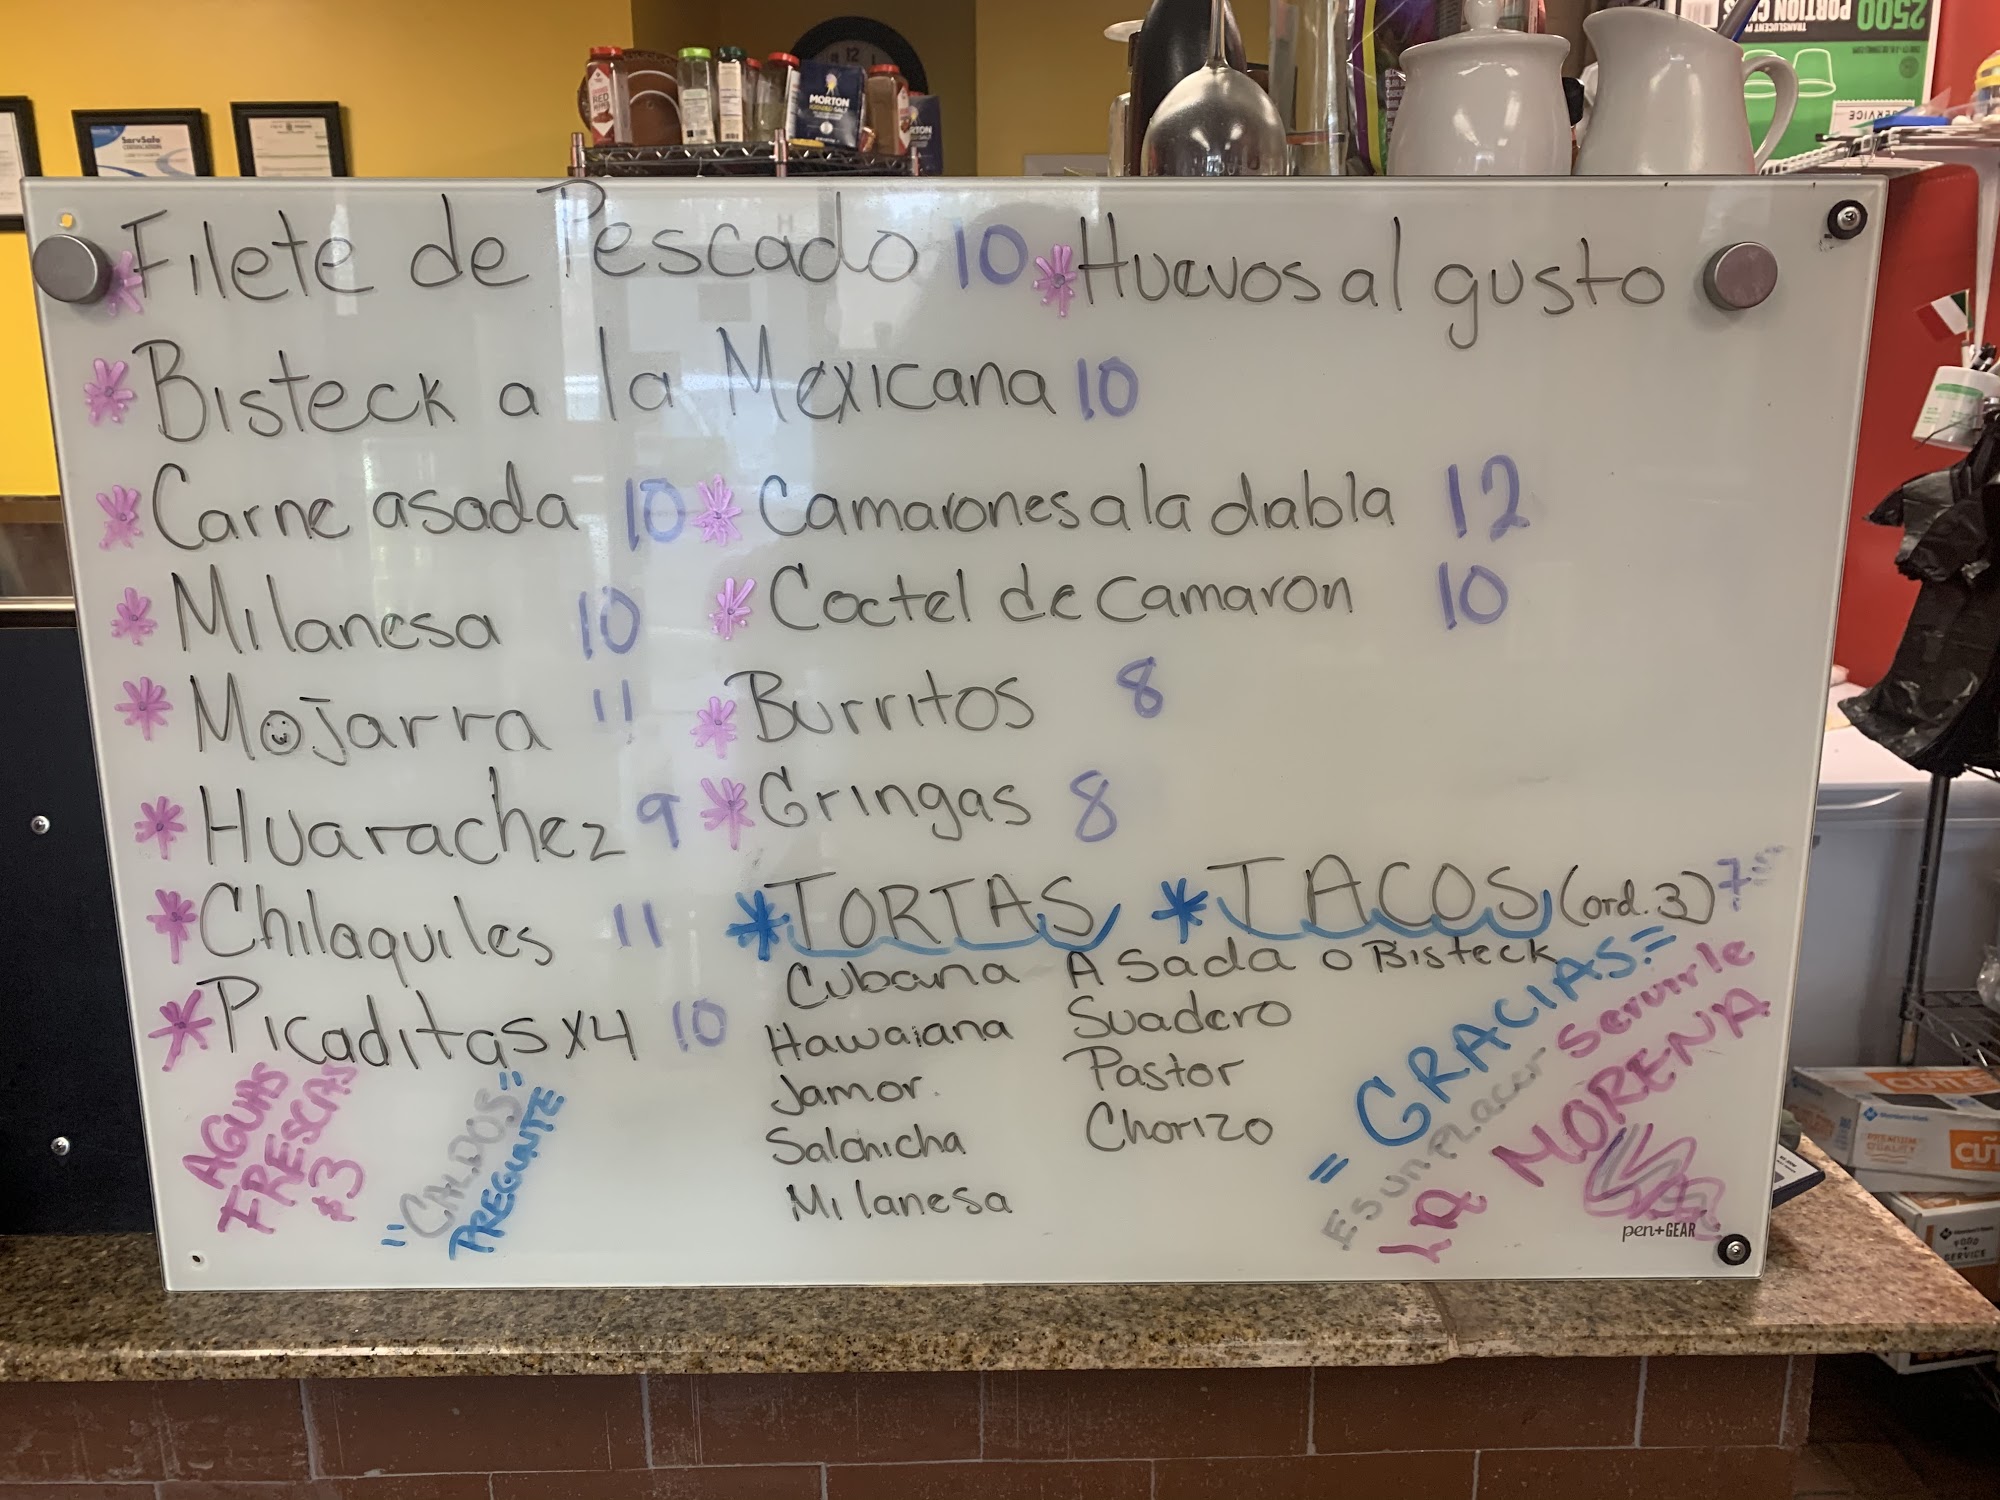 Filete de Pescado 10 *Huevos al gusto
*Bisteck a la Mexicana 10
*Carne asada 10 *Camarones a la diabla 12
*Milanesa 10 *Coctel de camaron 10
*Mojarra 11 *Burritos 8
*Huarachez 9 *Gringas 8
*Chilaquiles 11 *TORTAS *TACOS (ord. 3) 7
*Picaditas x4 10
Cubana
Hawaiana
Jamor.
Salchicha
Milanesa
Asada o Bisteck
Suadero
Pastor
Chorizo
AGUAS
FRESCAS
$3
"CALDOS"
PREGUNTE
=GRACIAS=
Es un placer Servirle
La MORENA
pen+GEAR
ServSafe
RED
MORTON
IODIZED SALT
RTON
12
2500
PORTION C
TRANSLUCENT
SERVICE
CUTIE
PREMIUM
QUALITY
CUT
FOOD
SERVICE